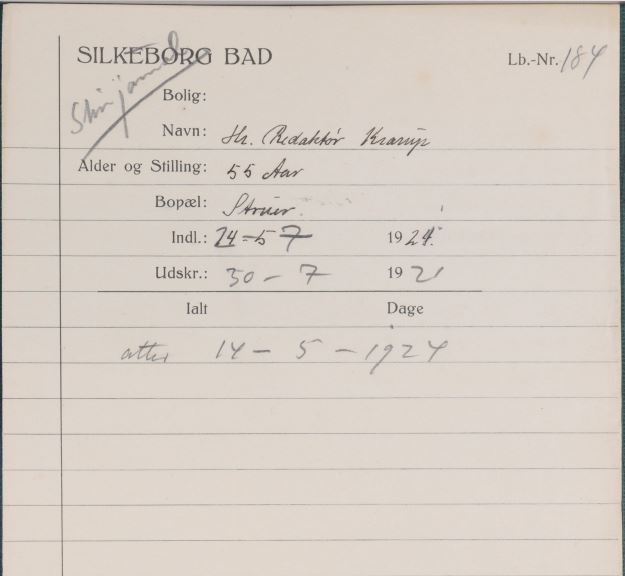 SILKEBORG BAD
Lb.-Nr. 184
Bolig:
Navn: Hr. Redaktør Krarup
Alder og Stilling: 55 Aar
Bopæl: Struer.
Indl.: 5 7 1924.
Udskr.: 30 - 7 1921
Ialt Dage
atter 14 - 5 - 1924